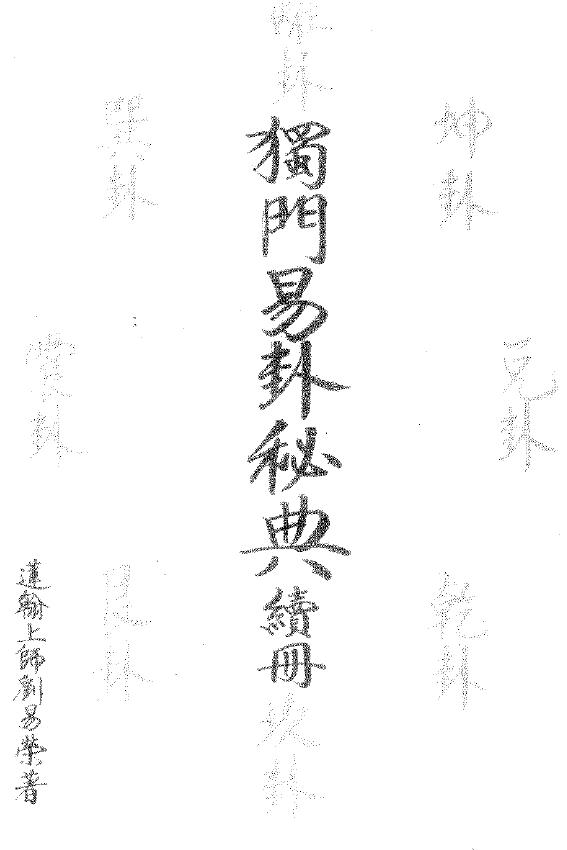 坤卦
兌卦
乾卦
離卦
獨門易卦秘典續冊
坎卦
巽卦
震卦
艮卦
蓮翰上師劉易榮著